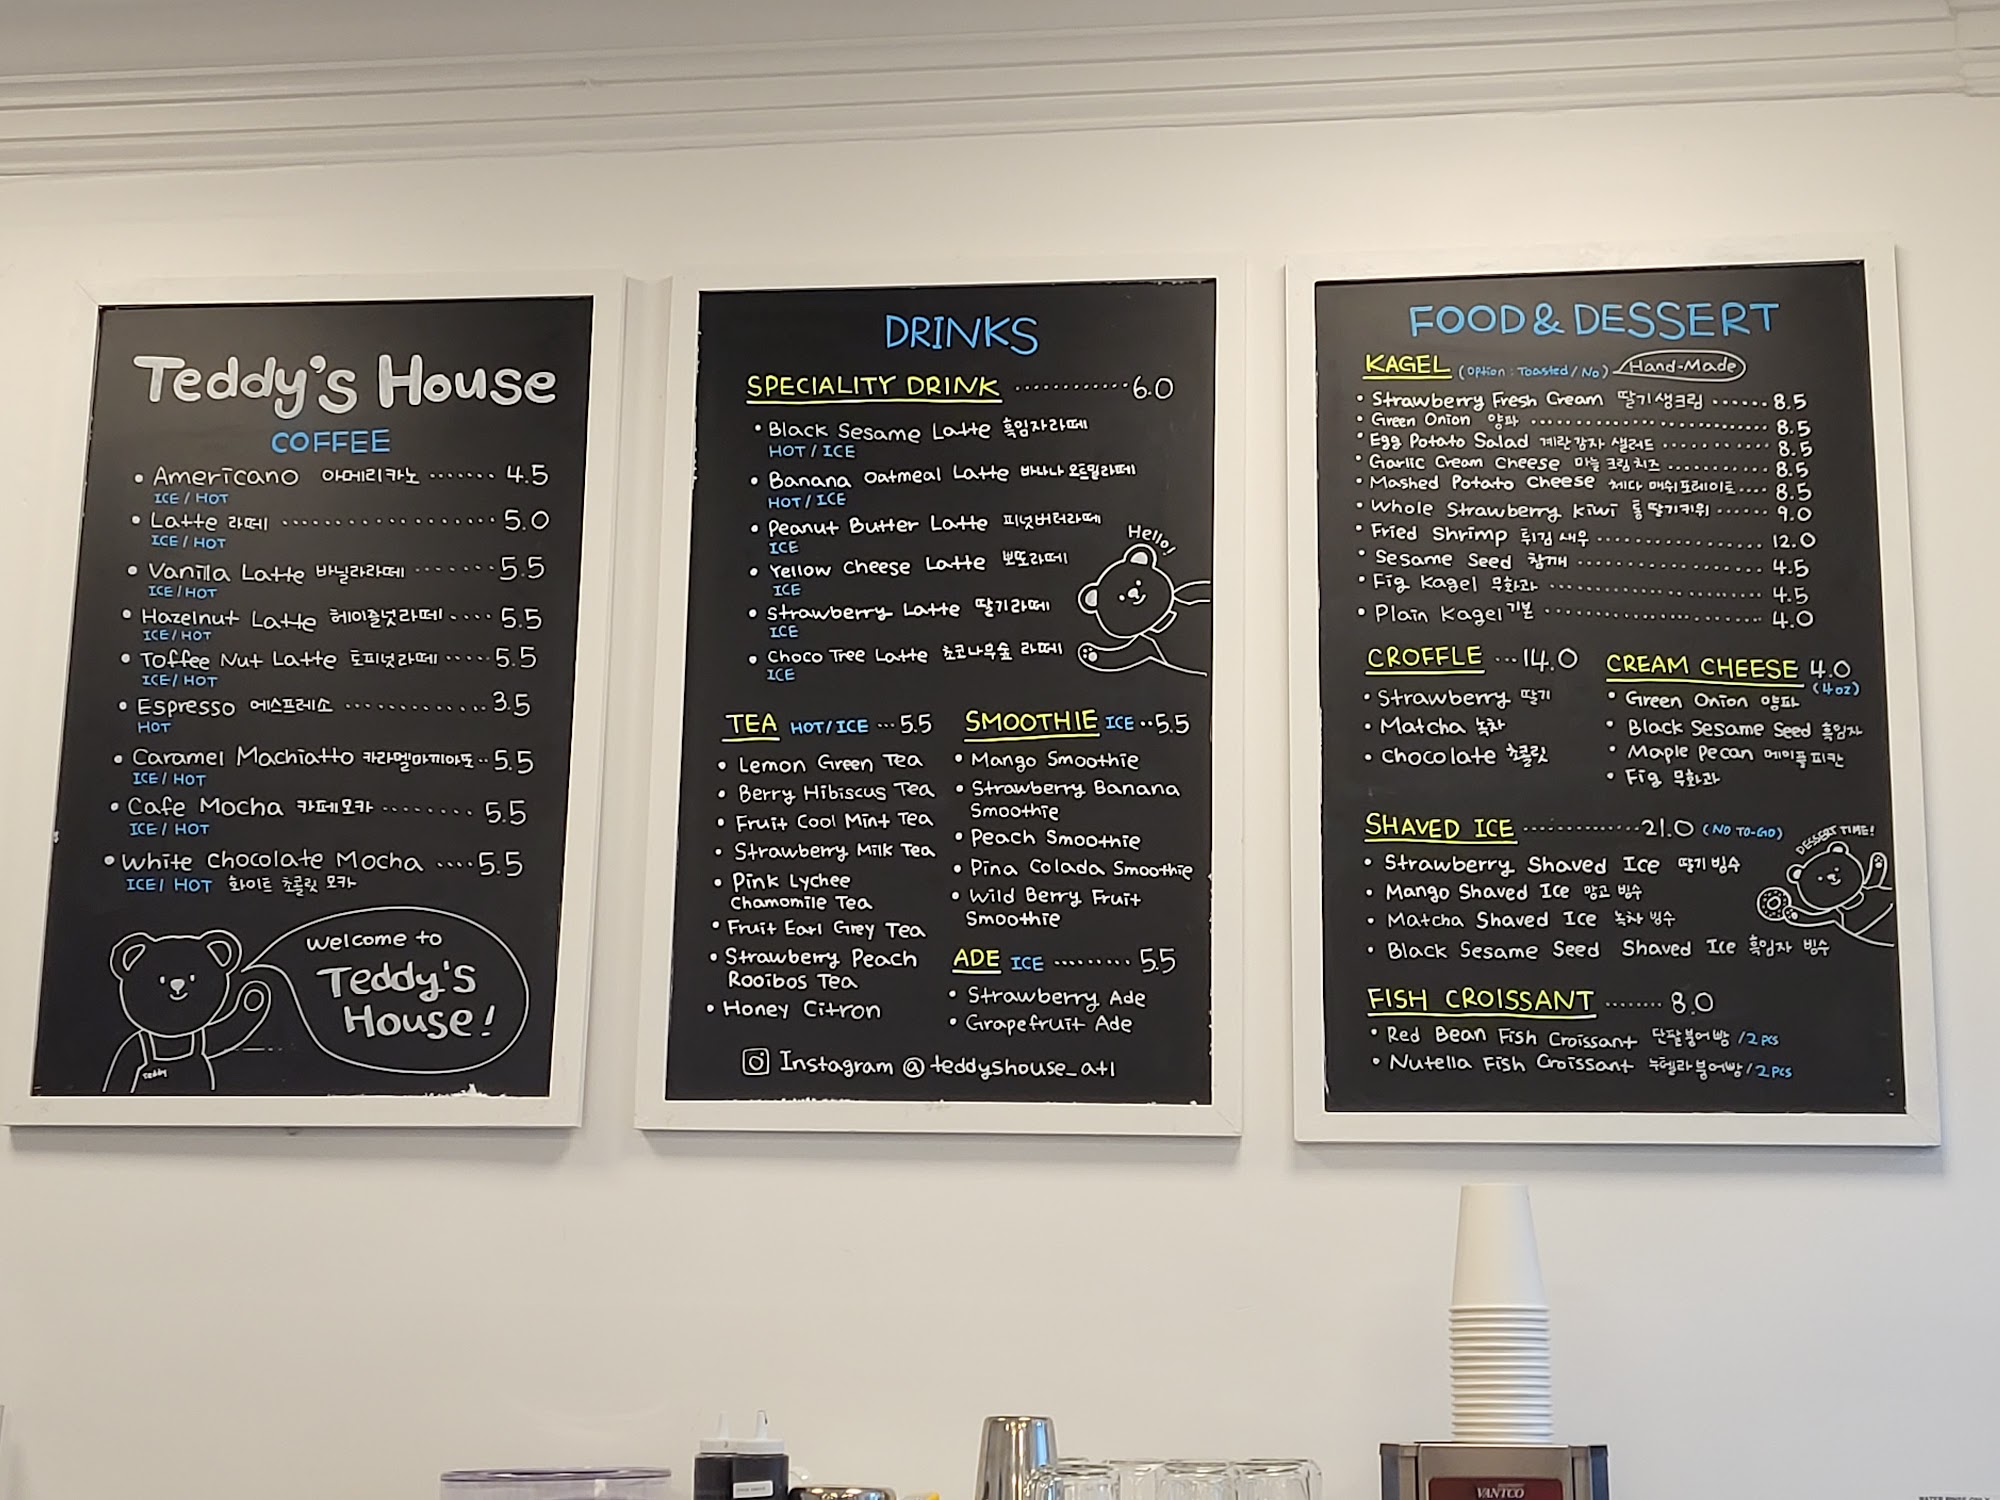 Teddy's House
COFFEE
• Americano 아메리카노 ....... 4.5
ICE / HOT
• Latte 라떼 .................. 5.0
ICE / HOT
• Vanilla Latte 바닐라라떼 ....... 5.5
ICE / HOT
• Hazelnut Latte 헤이즐넛라떼 .... 5.5
ICE / HOT
• Toffee Nut Latte 토피넛라떼 ..... 5.5
ICE / HOT
• Espresso 에스프레소 ............. 3.5
HOT
• Caramel Machiatto 카라멜마끼아또 .. 5.5
ICE / HOT
• Cafe Mocha 카페모카 ........ 5.5
ICE / HOT
• White Chocolate Mocha .... 5.5
ICE / HOT 화이트 초콜릿 모카
Welcome to
Teddy's
House!
Teddy
DRINKS
SPECIALITY DRINK ............ 6.0
• Black Sesame Latte 흑임자라떼
HOT / ICE
• Banana Oatmeal Latte 바나나 오트밀라떼
HOT / ICE
• Peanut Butter Latte 피넛버터라떼
ICE
• Yellow Cheese Latte 뽀또라떼
ICE
• Strawberry Latte 딸기라떼
ICE
• Choco Tree Latte 초코나무숲 라떼
ICE
Hello!
TEA HOT/ICE ... 5.5
• Lemon Green Tea
• Berry Hibiscus Tea
• Fruit Cool Mint Tea
• Strawberry Milk Tea
• Pink Lychee
Chamomile Tea
• Fruit Earl Grey Tea
• Strawberry Peach
Rooibos Tea
• Honey Citron
SMOOTHIE ICE .. 5.5
• Mango Smoothie
• Strawberry Banana
Smoothie
• Peach Smoothie
• Pina Colada Smoothie
• Wild Berry Fruit
Smoothie
ADE ICE ......... 5.5
• Strawberry Ade
• Grapefruit Ade
Instagram @teddyshouse_atl
FOOD & DESSERT
KAGEL (Option : Toasted / No) Hand-Made
• Strawberry Fresh Cream 딸기생크림 ...... 8.5
• Green Onion 양파 ............................ 8.5
• Egg Potato Salad 계란감자 샐러드 ............ 8.5
• Garlic Cream Cheese 마늘 크림치즈 ........... 8.5
• Mashed Potato Cheese 체다 매쉬포테이토 .... 8.5
• Whole Strawberry Kiwi 통딸기키위 ...... 9.0
• Fried Shrimp 튀김 새우 .................. 12.0
• Sesame Seed 참깨 .................... 4.5
• Fig Kagel 무화과 ...................... 4.5
• Plain Kagel 기본 ....................... 4.0
CROFFLE ... 14.0
• Strawberry 딸기
• Matcha 녹차
• Chocolate 초콜릿
CREAM CHEESE 4.0
(4oz)
• Green Onion 양파
• Black Sesame Seed 흑임자
• Maple Pecan 메이플피칸
• Fig 무화과
SHAVED ICE ............. 21.0 (NO TO-GO)
• Strawberry Shaved Ice 딸기빙수
• Mango Shaved Ice 망고 빙수
• Matcha Shaved Ice 녹차 빙수
• Black Sesame Seed Shaved Ice 흑임자 빙수
DESSERT TIME!
FISH CROISSANT ........ 8.0
• Red Bean Fish Croissant 단팥붕어빵 / 2 PCS
• Nutella Fish Croissant 누텔라붕어빵 / 2 PCS
VANTCO